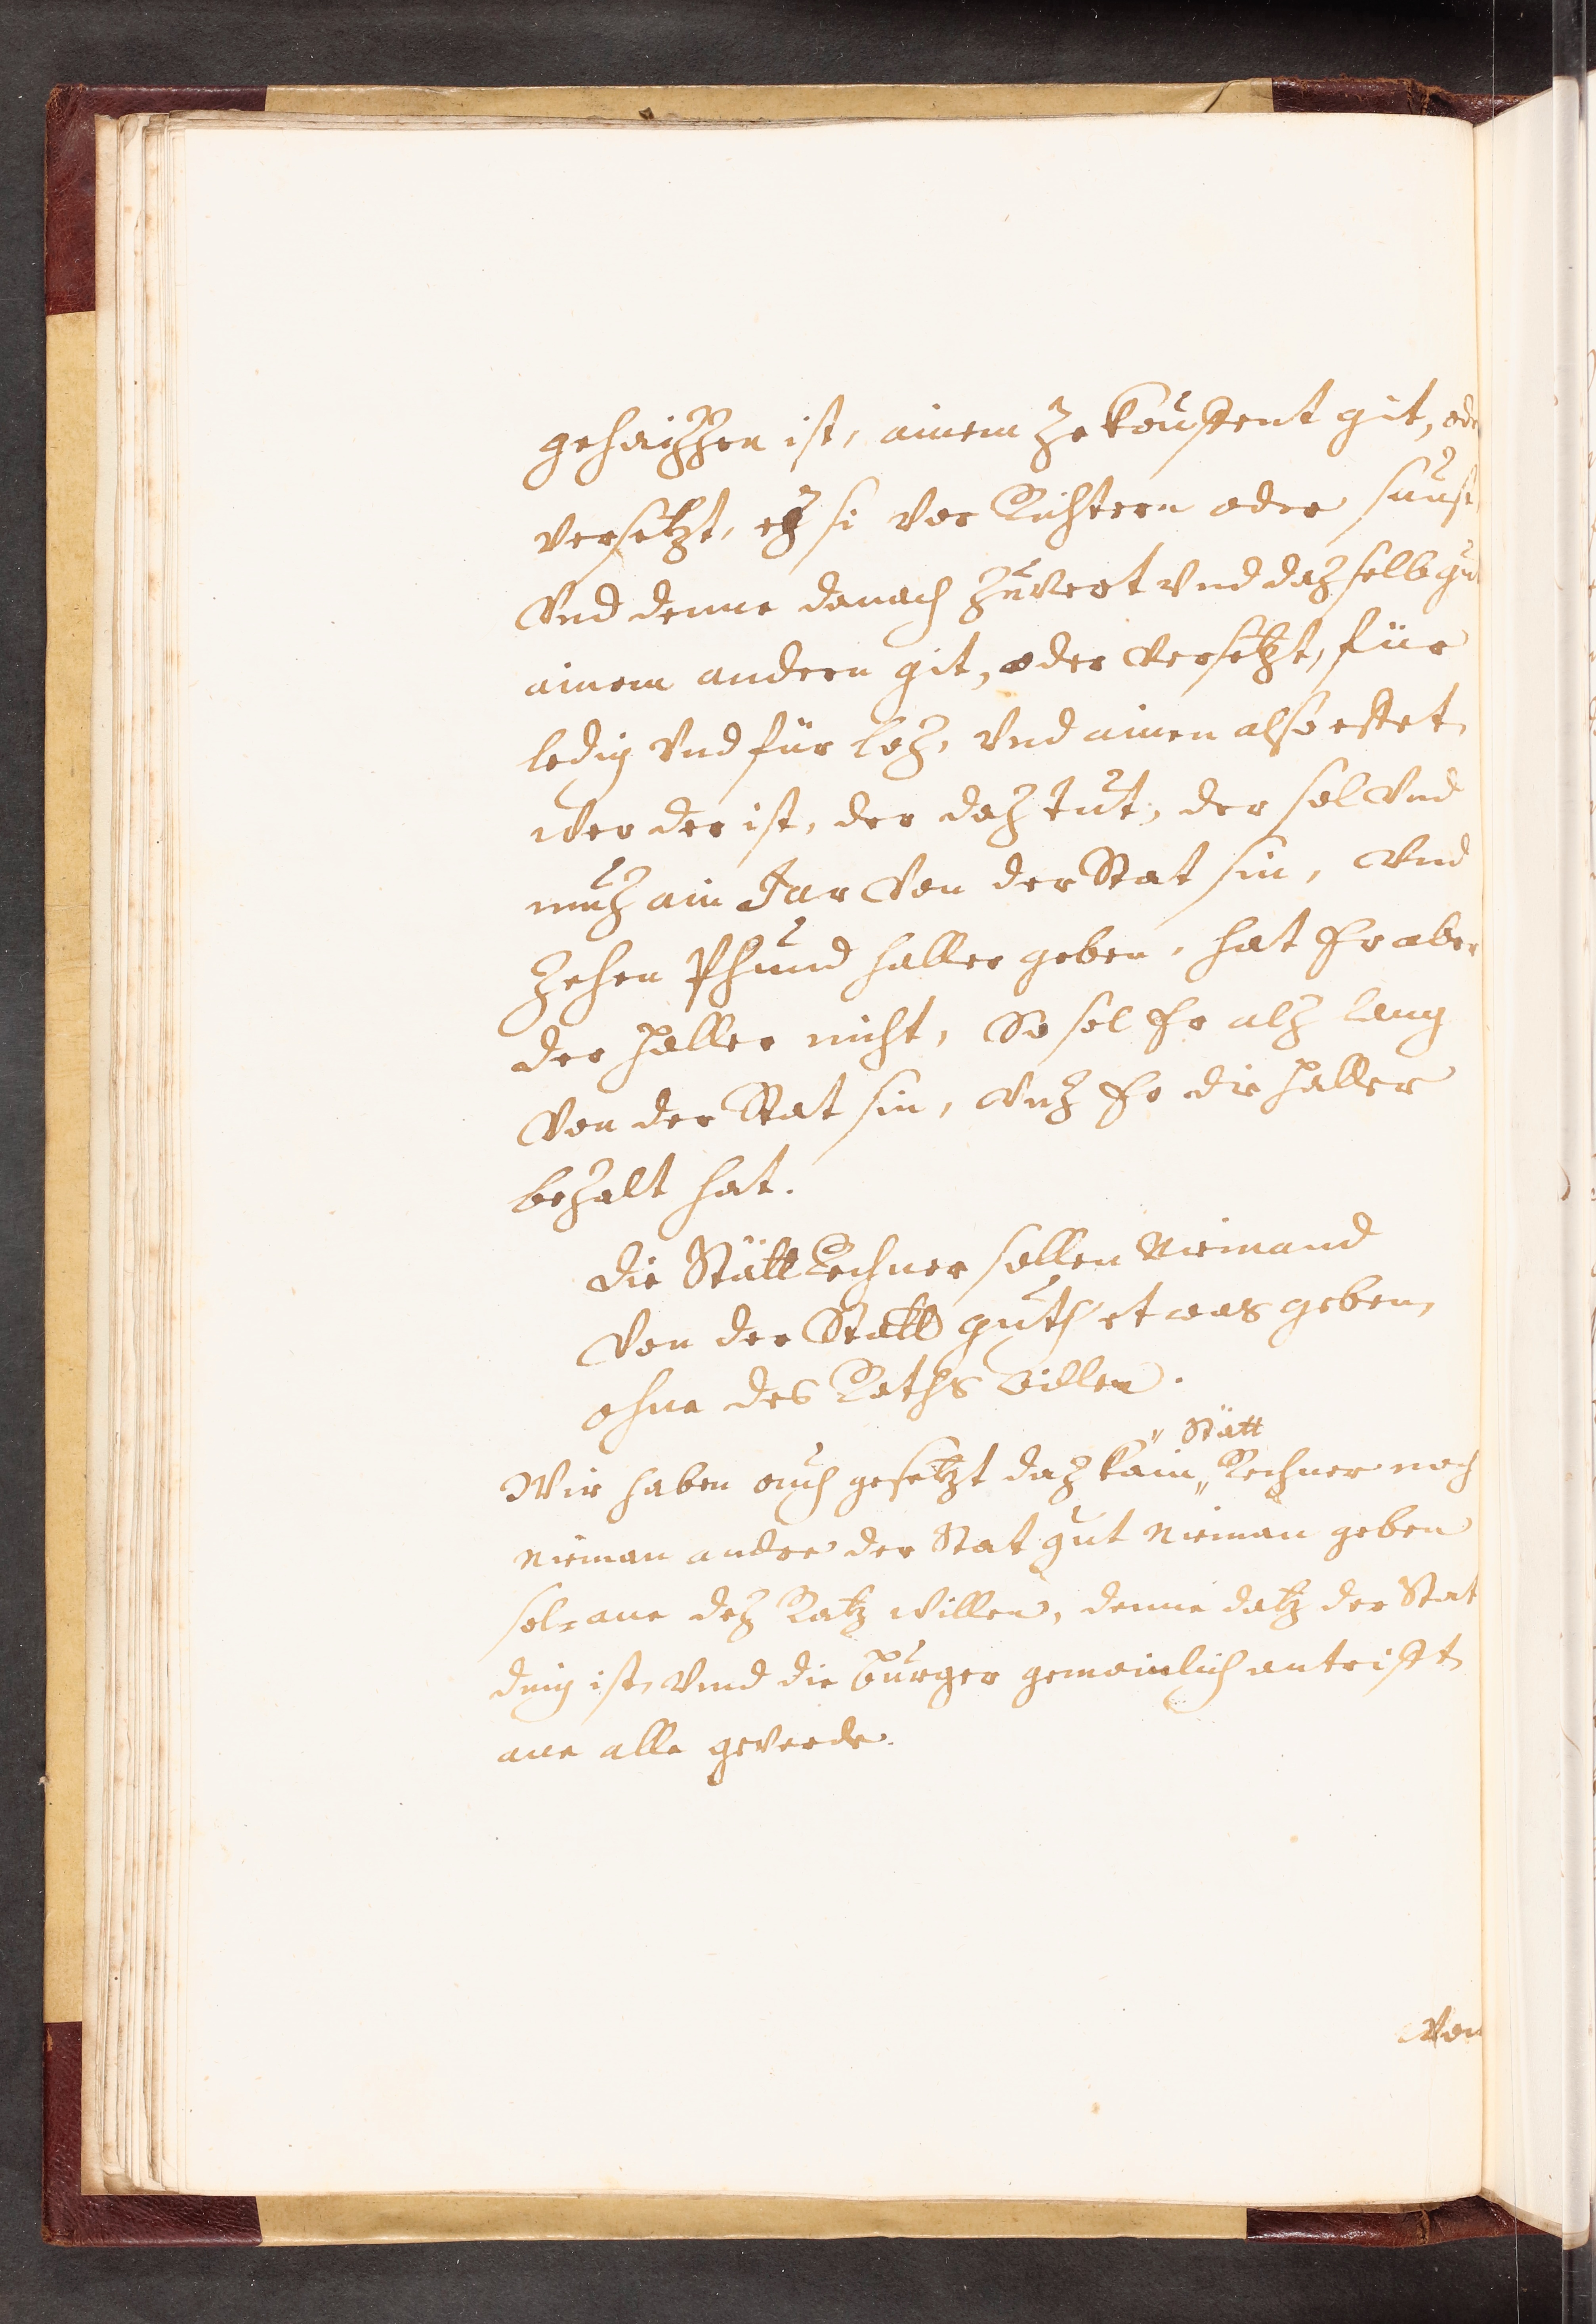 gehaizzen ist, ainem ze koustent git, ode
versetzt, ez si vor Richtern oder suust,
Vnd denne danach zuvert vnd daz selb gu
ainem andern git, oder versetzt, für
ledig vnd für loz, vnd ainen also effet,
wer der ist, der daz tut, der sol vnd
muz ain Jar von der Stat sin, vnd
zehen Phund haller geben, hat Er aber
der haller nicht, So sol Er alz lang
von der Stat sin, vnz Er die haller
bezalt hat.
Die Stätt Rechner sollen Niemand
von der Statt guth etwas geben,
ohne des Raths Willen.
" Stätt
Wir haben auch gesetzt daz kain „ Rechner noch
nieman andre der Stat gut nieman geben
sol, ane dez Ratz willen, denne datz der Stat
ding ist, vnd die burger gemeinlich antrifft
ane alle geverde.
Von